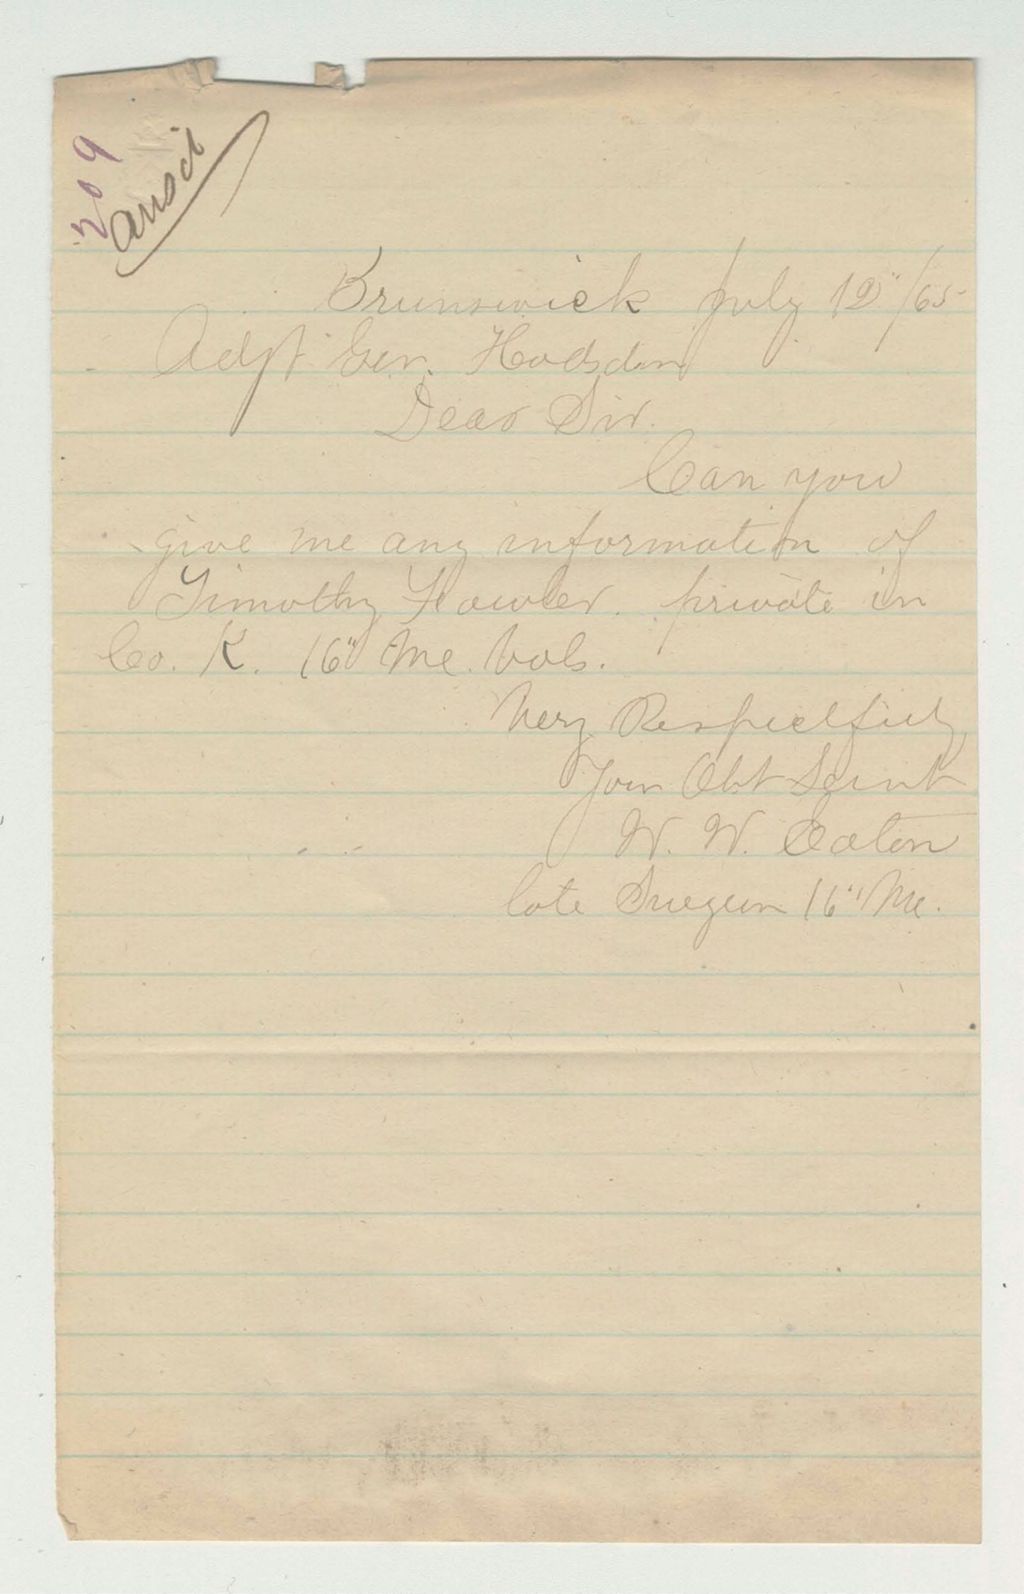 209
ansd
Brunswick July 12"/65
Adjt Gen. Hodsdon
Dear Sir.
Can you
give me any information of
Timothy Fowler. private in
Co. K. 16" Me. Vols.
Very Respectfully
Your Obt Servt
W. W. Eaton
late Surgeon 16" Me.